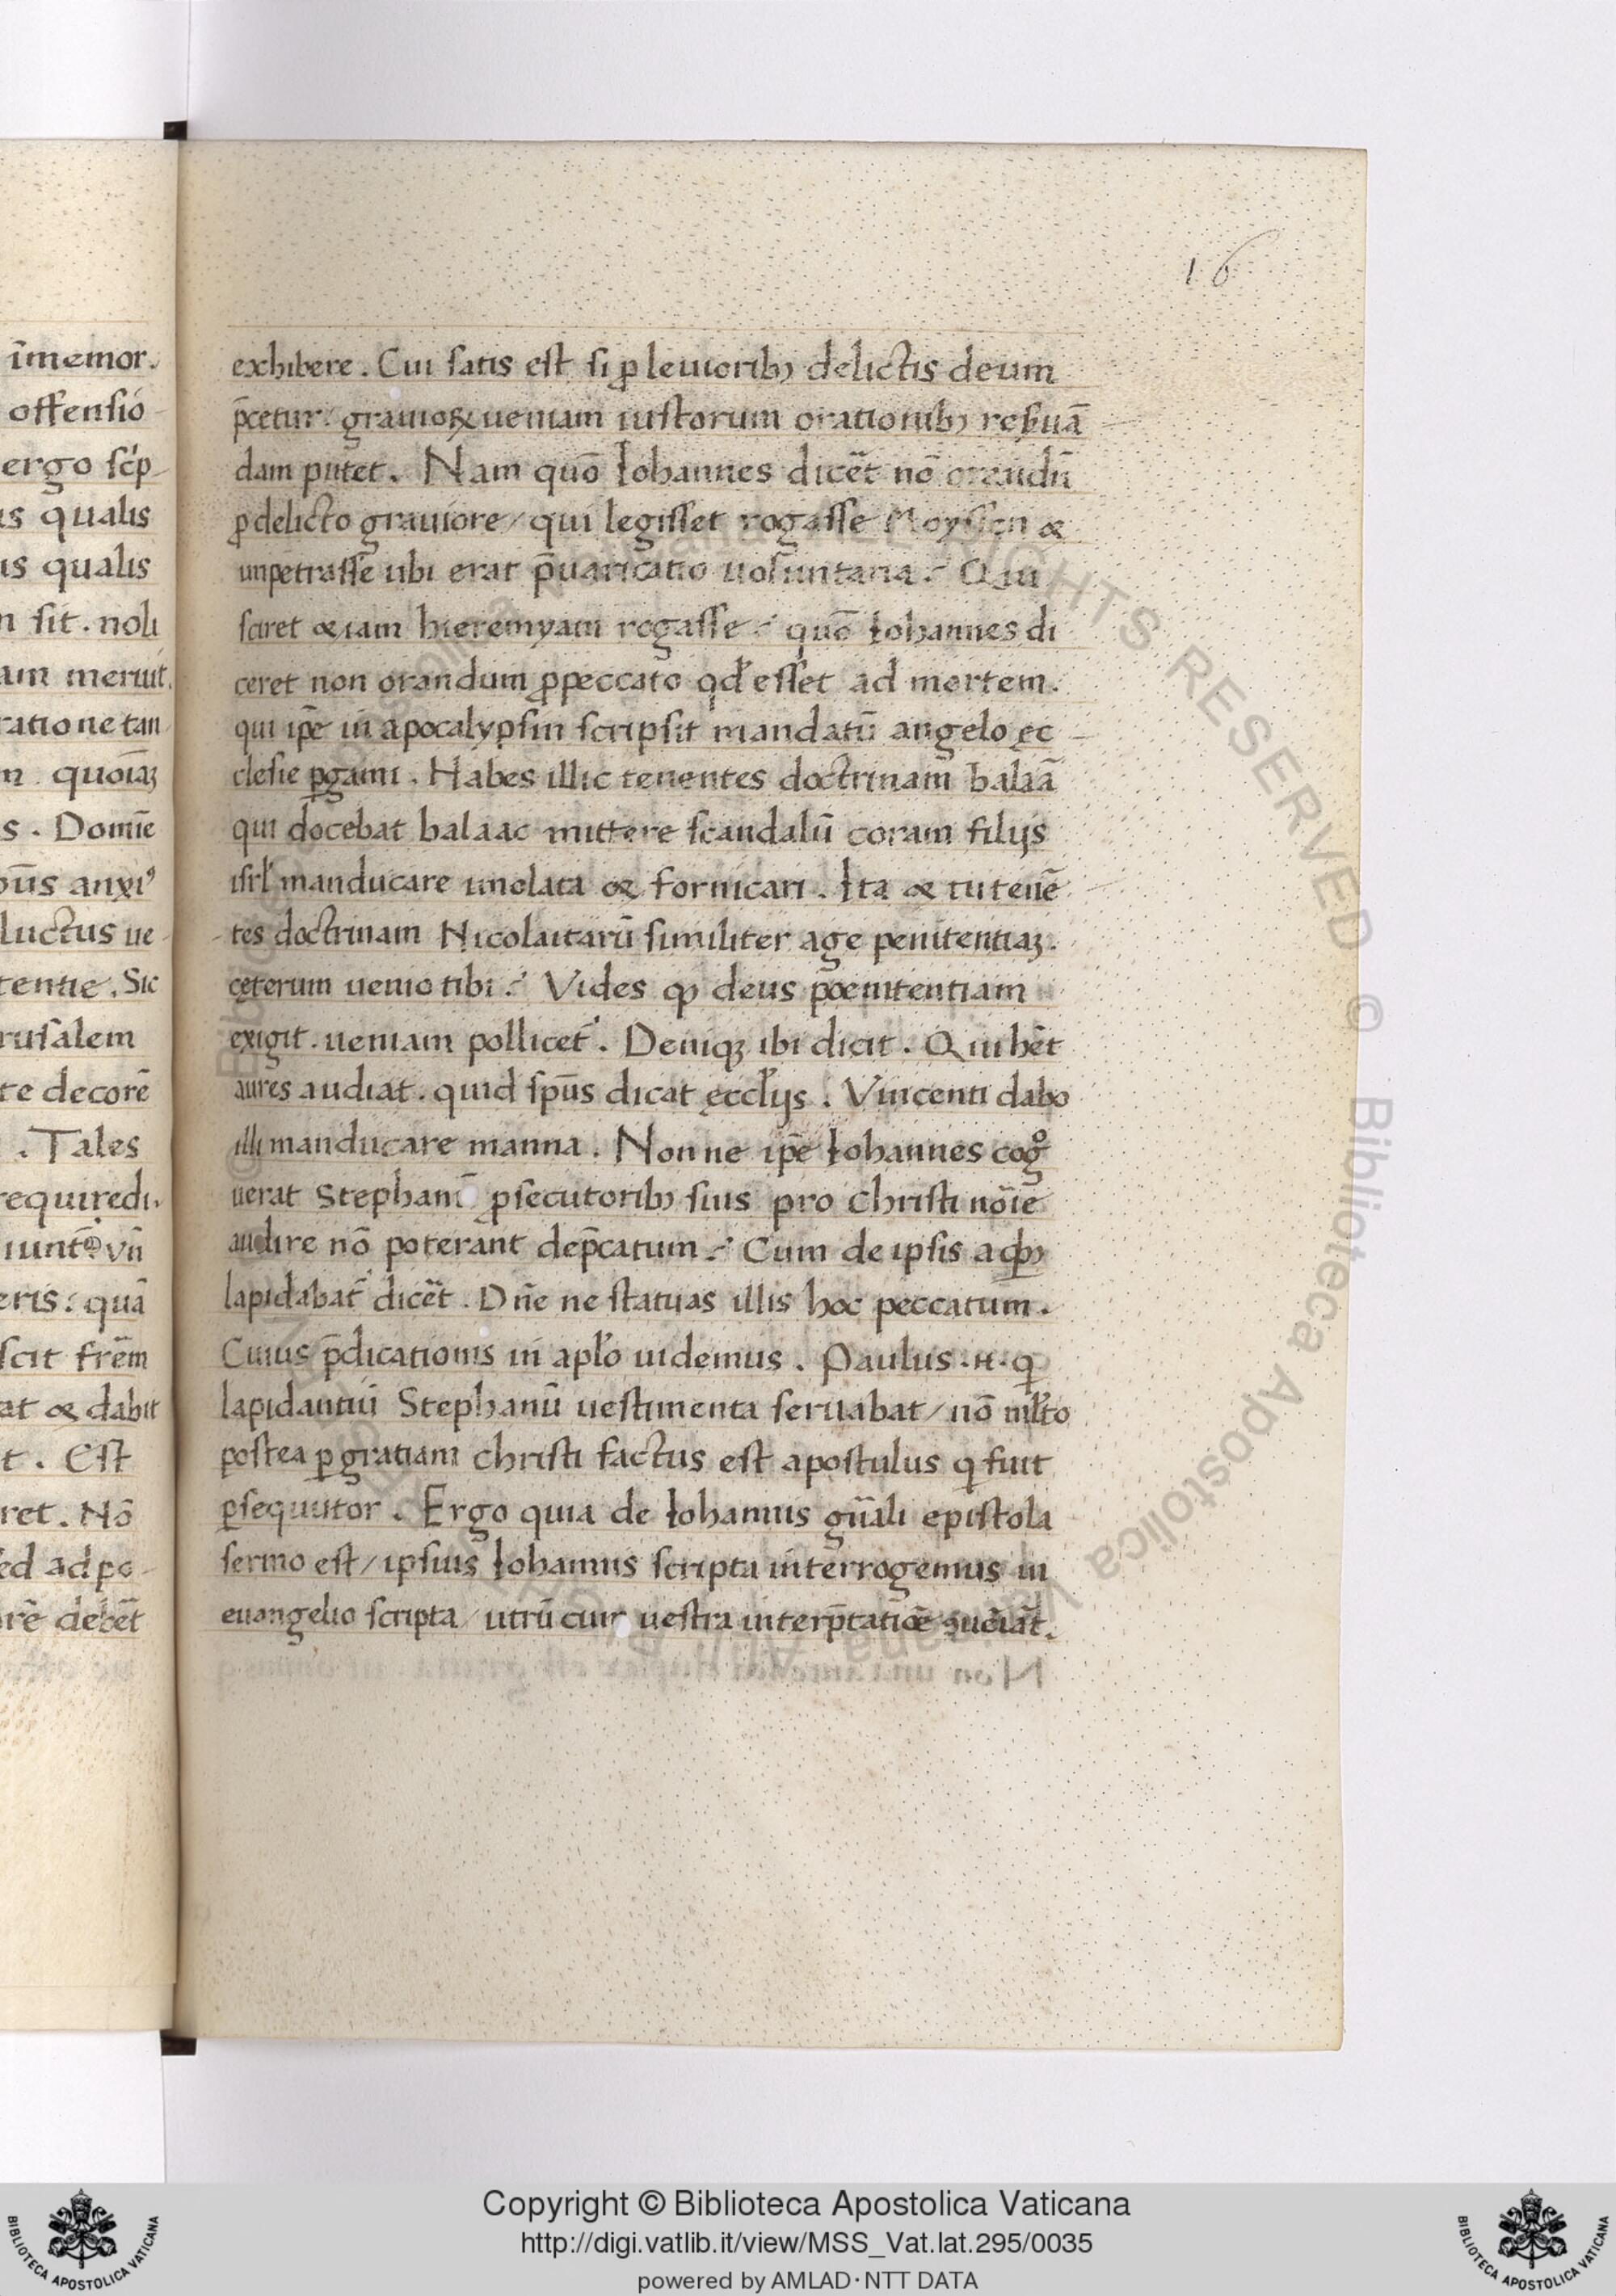 16
īmemor.
offensio
ergo scp̄
us qualis
us qualis
n sit. noli
am meruit.
ratione tan
m quoīaꝫ
s. Domīe
pūs anxi⁹
luctus ue
tentie. Sic
rusalem
te decorē
. Tales
requiredi.
iunt vn̄
eris: quā
scit frēm
at & dabit
t. Est
ret. Nō
ed ad po-
rē debēt
exhibere. Cui satis est si ꝓ leuioribꝫ delictis deum
p̄cetur: grauioꝝ ueniam iustorum orationibꝫ reẜuā
dam putet. Nam quō Iohannes dicēt nō orandū
ꝓ delicto grauiore / qui legisset rogasse Moysen &
impetrasse ubi erat p̄uaricatio uoluntaria? Qui
sciret &iam hieremyam rogasse? quō Iohannes di
ceret non orandum ꝓ peccato qđ esset ad mortem.
qui ip̄e in apocalypsin scripsit mandatū angelo ęc
clesie ꝑgami. Habes illic tenentes doctrinam balaā
qui docebat balaac mittere scandalū coram filijs
isrl̓ manducare imolata & fornicari. Ita & tu tenē
tes doctrinam Nicolaitarū similiter age penitentiaꝫ.
cęterum uenio tibi? Vides ꝙ deus pōenitentiam
exigit. ueniam pollicet᷑. Deniqꝫ ibi dicit. Qui hēt
aures audiat. quid sp̄us dicat ęccl̓ijs. Vincenti dabo
illi manducare manna. Non ne ip̄e Iohannes cogͦ
uerat Stephanū ꝓ ꝑsecutoribꝫ suis pro christi nōie
audire nō poterant dep̄catum? Cum de ipsis a qͥbꝫ
lapidabat᷑ dicēt. Dn̄e ne statuas illis hoc peccatum.
Cuius p̄dicationis in apl̓o uidemus. Paulus .n. qͥ
lapidantiū Stephanū uestimenta seruabat / nō ml̓to
postea ꝑ gratiam christi factus est apostulus qͥ fuit
ꝑsequutor. Ergo quia de Iohannis gn̄ali epistola
sermo est / ipsius Iohannis scripta interrogemus in
euangelio scripta / utrū cum uestra interp̄tatiōe ꝯuēiāt.
© Biblioteca Apostolica Vaticana ALL RIGHTS RESERVED
Copyright © Biblioteca Apostolica Vaticana
http://digi.vatlib.it/view/MSS_Vat.lat.295/0035
powered by AMLAD · NTT DATA
BIBLIOTECA APOSTOLICA VATICANA
BIBLIOTECA APOSTOLICA VATICANA